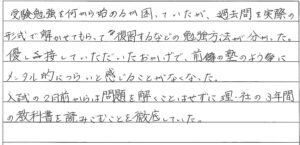 受験勉強を何から始めるか困っていたが、過去問を実際の
形式で解かせてもらって復習するなどの勉強方法が分かった。
優しく接していただいたおかげで、前の塾のように
メンタル的につらいと感じることがなくなった。
入試の2日前からは問題を解くことはせずに理・社の3年間
の教科書を読みこむことを徹底していた。